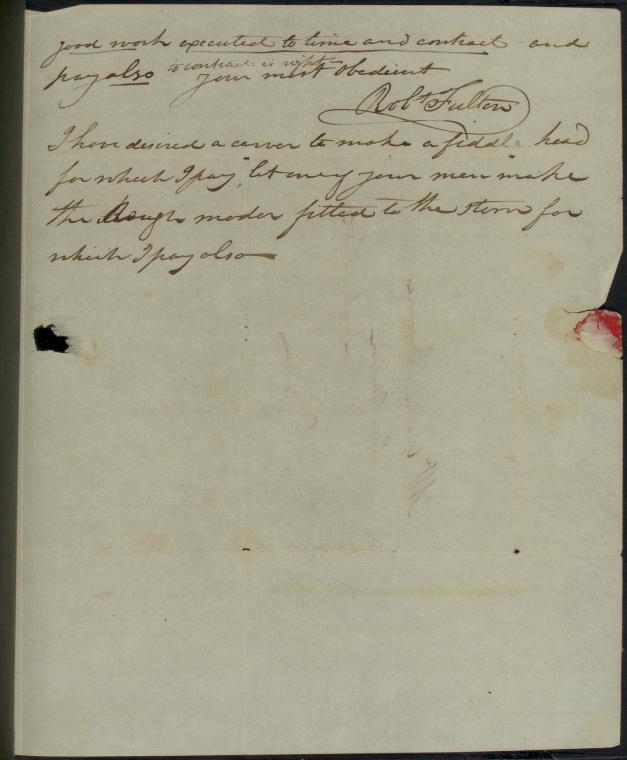 good work executed to time and contract and
pay also to contract is right
your most obedient
Robt Fulton
I have desired a carver to make a fiddle head
for which I pay, let one of your men make
the Rough model fitted to the stern for
which I pay also